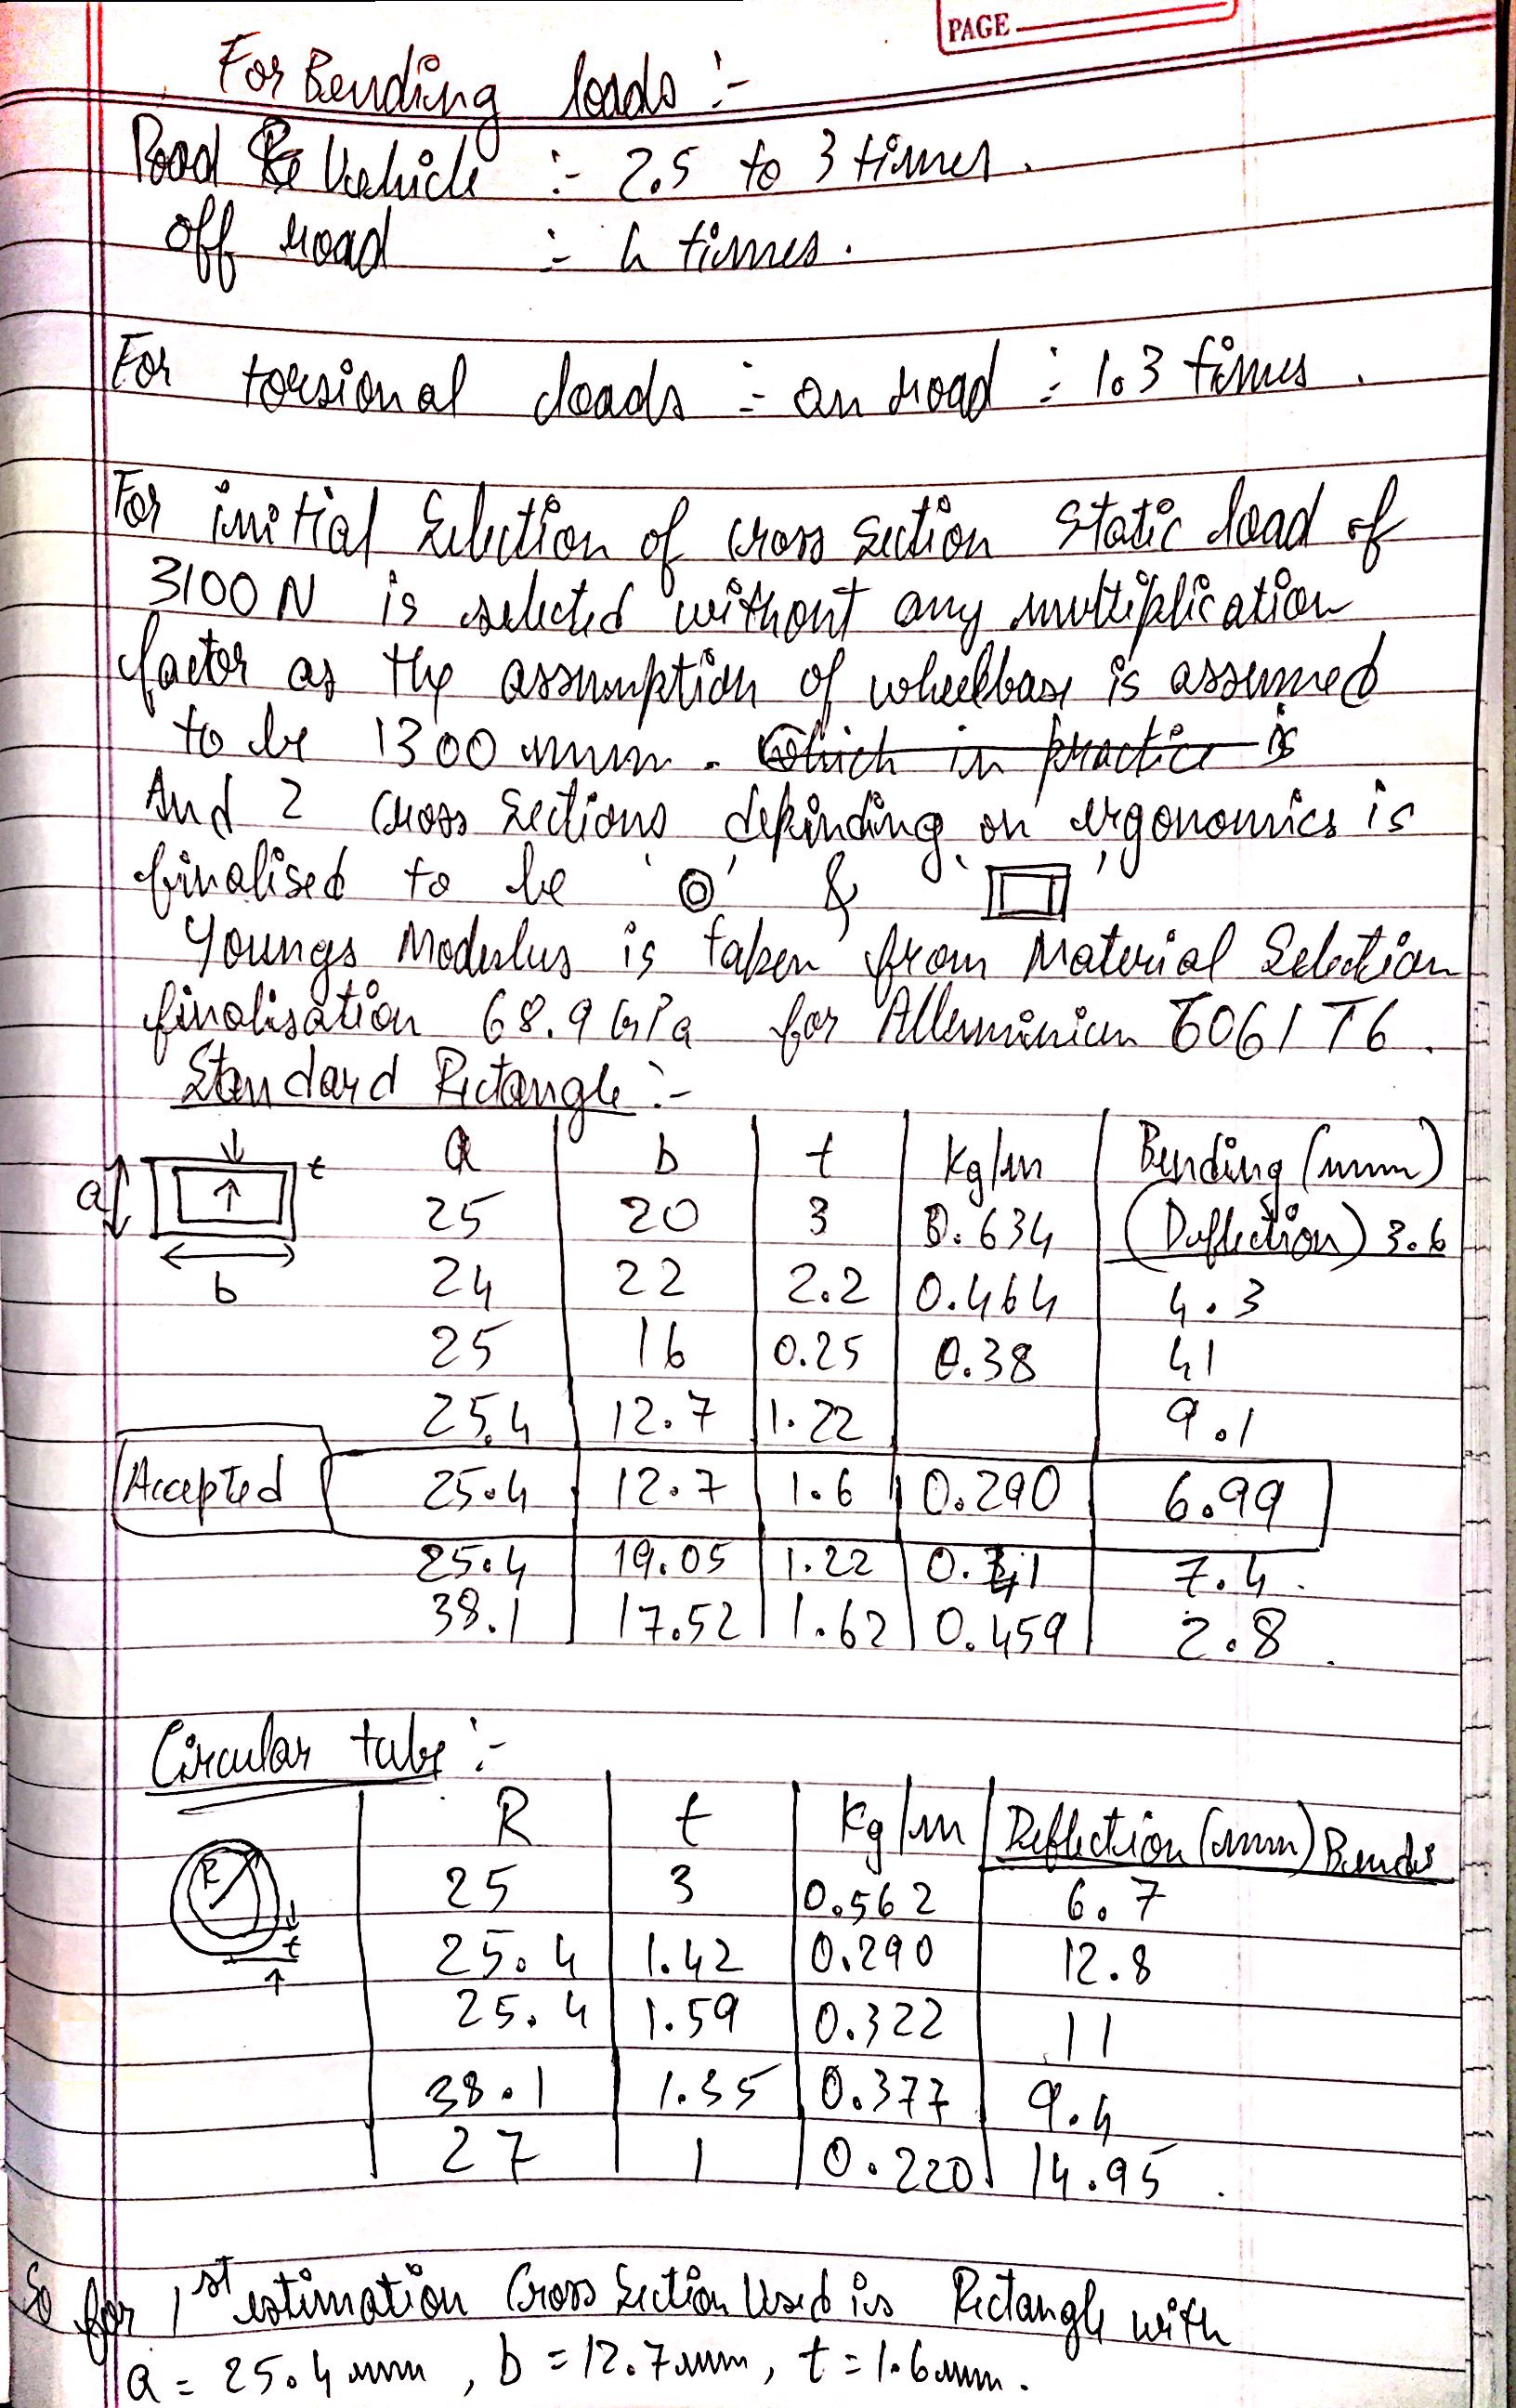 PAGE
For Bending loads :-
Road Vehicle :- 2.5 to 3 times.
off road :- 4 times.
For torsional loads :- on road : 1.3 times.
For initial Selection of cross section static load of
3100 N is selected without any multiplication
factor as the assumption of wheelbase is assumed
to be 1300 mm. Which in practice is
And 2 cross sections depending on ergonomics is
finalised to be ' ' & ' '
Youngs Modulus is taken from Material Selection
finalisation 68.9 GPa for Alluminium 6061 T6.
Standard Rectangle :-
a b t Kg/m Bending (mm)
t
a 25 20 3 0.634 (Deflection) 3.6
b 24 22 2.2 0.464 4.3
25 16 0.25 0.38 41
25.4 12.7 1.22 9.1
Accepted 25.4 12.7 1.6 0.290 6.99
25.4 19.05 1.22 7.4.
38.1 17.52 1.62 0.459 2.8.
Circular tube :-
R t Kg/m Deflection (mm)
R 25 3 0.562 6.7
t 25.4 1.42 0.290 12.8
25.4 1.59 0.322 11
38.1 1.35 0.377 9.4
27 1 0.220 14.95.
So for 1st estimation Cross Section Used is Rectangle with
a = 25.4 mm, b = 12.7 mm, t = 1.6 mm.